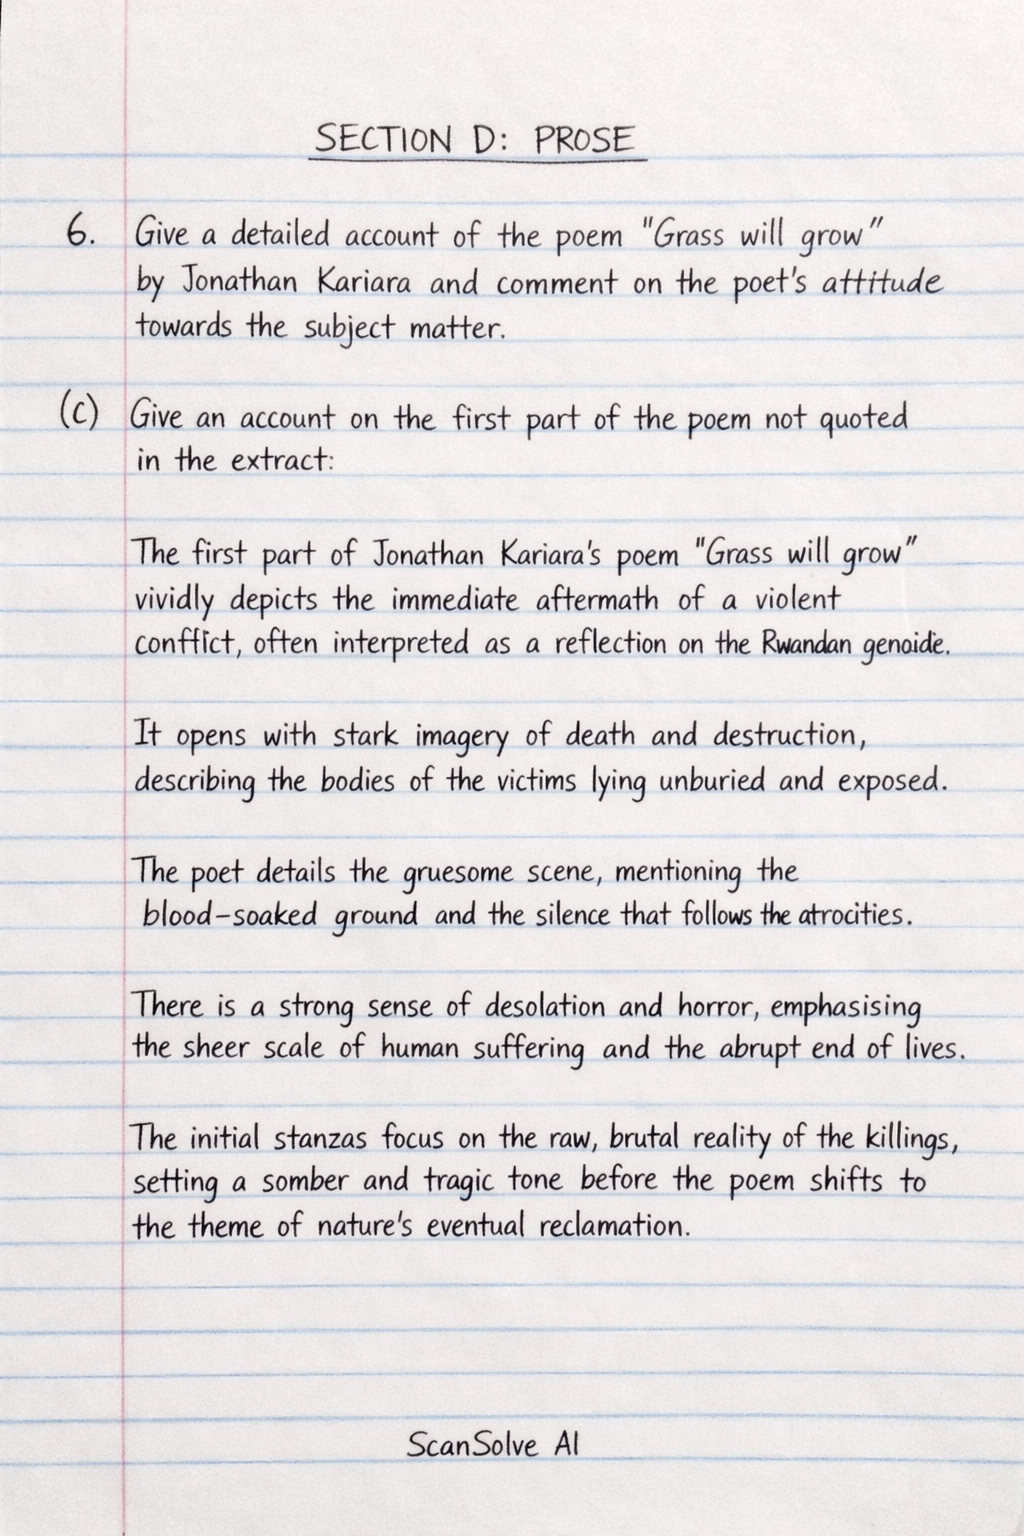 SECTION D: PROSE
6. Give a detailed account of the poem "Grass will grow"
by Jonathan Kariara and comment on the poet's attitude
towards the subject matter.
(c) Give an account on the first part of the poem not quoted
in the extract:
The first part of Jonathan Kariara's poem "Grass will grow"
vividly depicts the immediate aftermath of a violent
conflict, often interpreted as a reflection on the Rwandan genoide.
It opens with stark imagery of death and destruction,
describing the bodies of the victims lying unburied and exposed.
The poet details the gruesome scene, mentioning the
blood-soaked ground and the silence that follows the atrocities.
There is a strong sense of desolation and horror, emphasising
the sheer scale of human suffering and the abrupt end of lives.
The initial stanzas focus on the raw, brutal reality of the killings,
setting a somber and tragic tone before the poem shifts to
the theme of nature's eventual reclamation.
ScanSolve AI